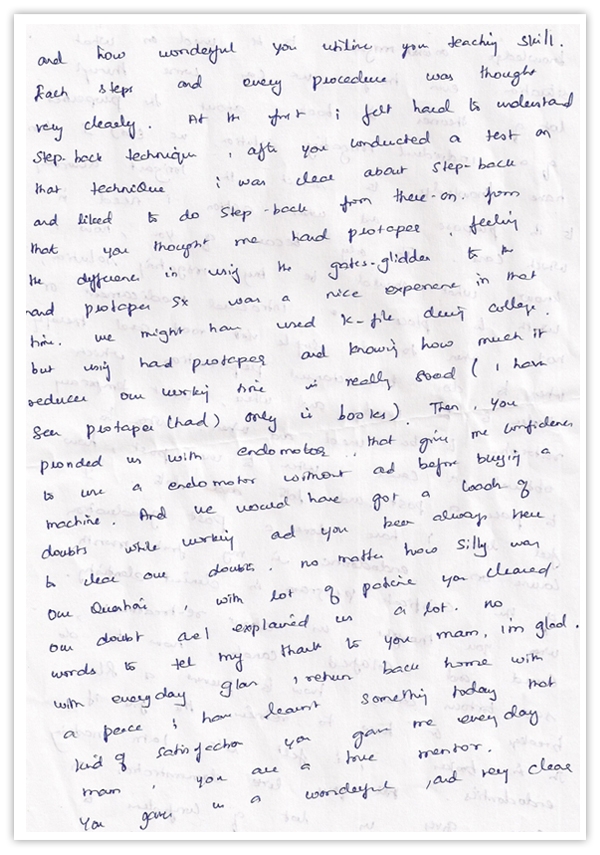 and how wonderful you utilise your teaching skill.
Each steps and every procedure was thought
very clearly. At the first i felt hard to understand
Step-back technique, after you conducted a test on
that technique i was clear about step-back
and liked to do step-back from there-on. from
that you thought me hand protaper. feeling
the difference in using the gates-glidder to the
hand protaper sx was a nice experience in that
time. we might have used k-file during college.
but using hand protaper and knowing how much it
reduces our working time is really good (i have
seen protaper (had) only in books). Then, you
provided us with endomotor.. that give me confidence
to use a endomotor without ad before buying a
machine. And we would have got a loads of
doubts while working ad you been always here
to clear our doubts. no matter how silly was
our Question, with lot of patience you cleared
our doubt and explained us a lot. no
words to tel my thank to you mam. i'm glad.
with everyday glan, i return back home with
a peace i have learnt something today that
kind of satisfaction you gave me everyday
mam, you are a true mentor.
You gave us a wonderful, and very clear